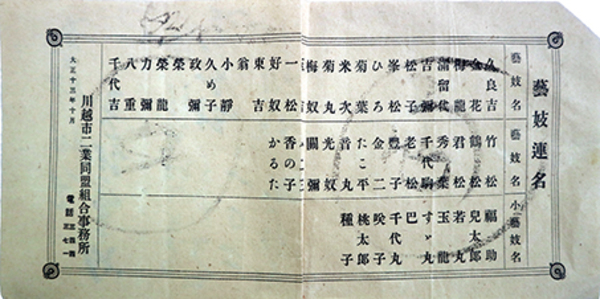 藝妓連名
藝妓名 藝妓名 小藝妓名
久良吉 竹松 福助
金花 鶴松 兒太郎
梅龍 君松 若丸
滿留代 秀葉 玉龍
吉彌 千代駒 すゞ丸
松子 老松 巴
峯松 豊子 千代丸
ひろ 金二 咲子
菊葉 たこ平 桃太郎
米次 音丸 種子
菊丸 光奴
梅奴 關彌
一松 香の子
好奴 かるた
東吉
翁
小靜
久め子
政彌
榮
榮龍
力彌
八重
千代吉
大正十三年十月
川越市二業同盟組合事務所
電話
三七一